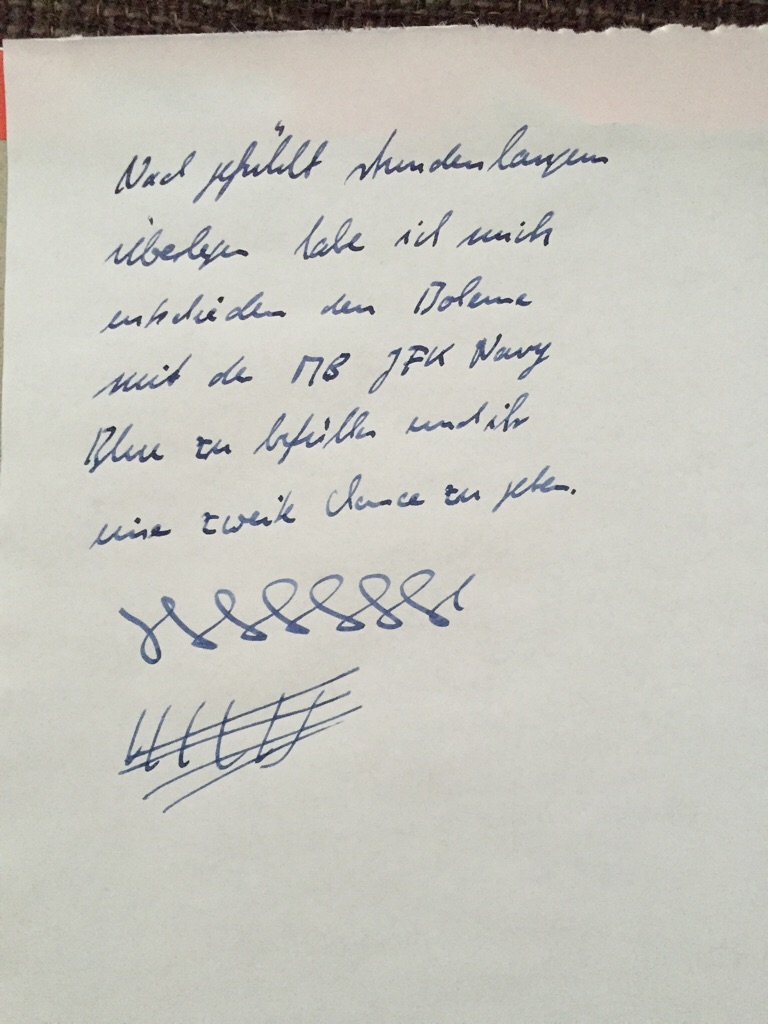 Nach gefühlt stundenlangem
überlegen habe ich mich
entschieden den Boheme
mit der MB JFK Navy
Blue zu befüllen und ihr
eine zweite Chance zu geben.